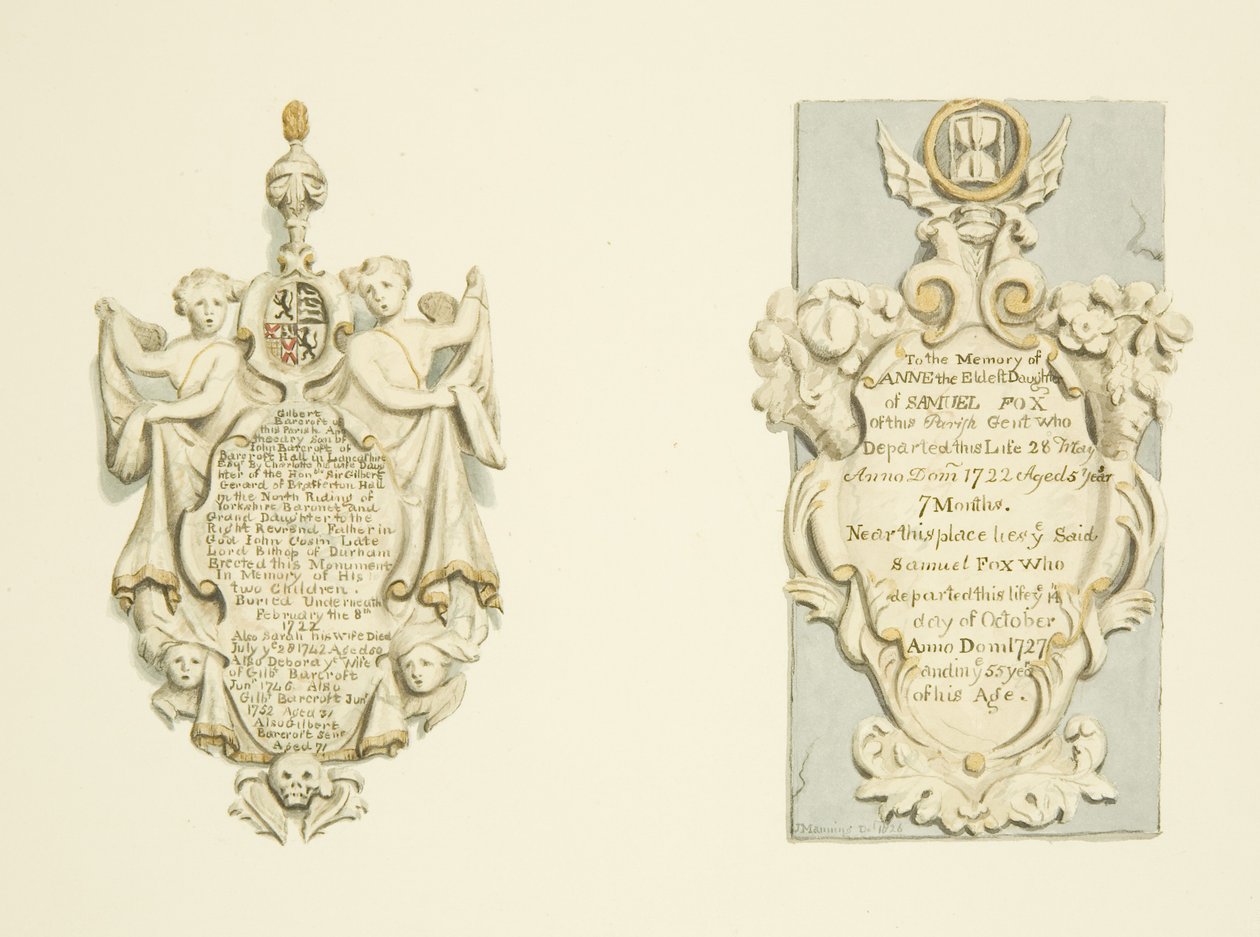 Gilbert
Barcroft of
this Parish Apo
thecary Son of
John Barcroft of
Barcroft Hall in Lancashire
Esqr. By Charlotte his wife Daug
hter of the Honble Sir Gilbert
Gerard of Brafferton Hall
in the North Riding of
Yorkshire Baronet and
Grand Daughter to the
Right Revrend Father in
God Iohn Cosin Late
Lord Bishop of Durham
Erected this Monument
In Memory of His
two Children.
Buried Underneath
February the 8th
1722
Also Sarah his Wife Died
July ye 28 1742 Aged 60
Also Debora ye Wife
of Gilbt Barcroft
Junr 1746. Also
Gilbt Barcroft Junr
1752 Aged 31
Also Gilbert
Barcroft Senr
Aged 71
To the Memory of
ANNE the Eldest Daughter
of SAMUEL FOX
of this Parish Gent Who
Departed this Life 28 May
Anno Dom̅ 1722 Aged 5 Years
7 Months.
Near this place lies ye Said
Samuel Fox Who
departed this life ye 14th
day of October
Anno Dom 1727
and in ye 55 year
of his Age.
J Manning Del 1826